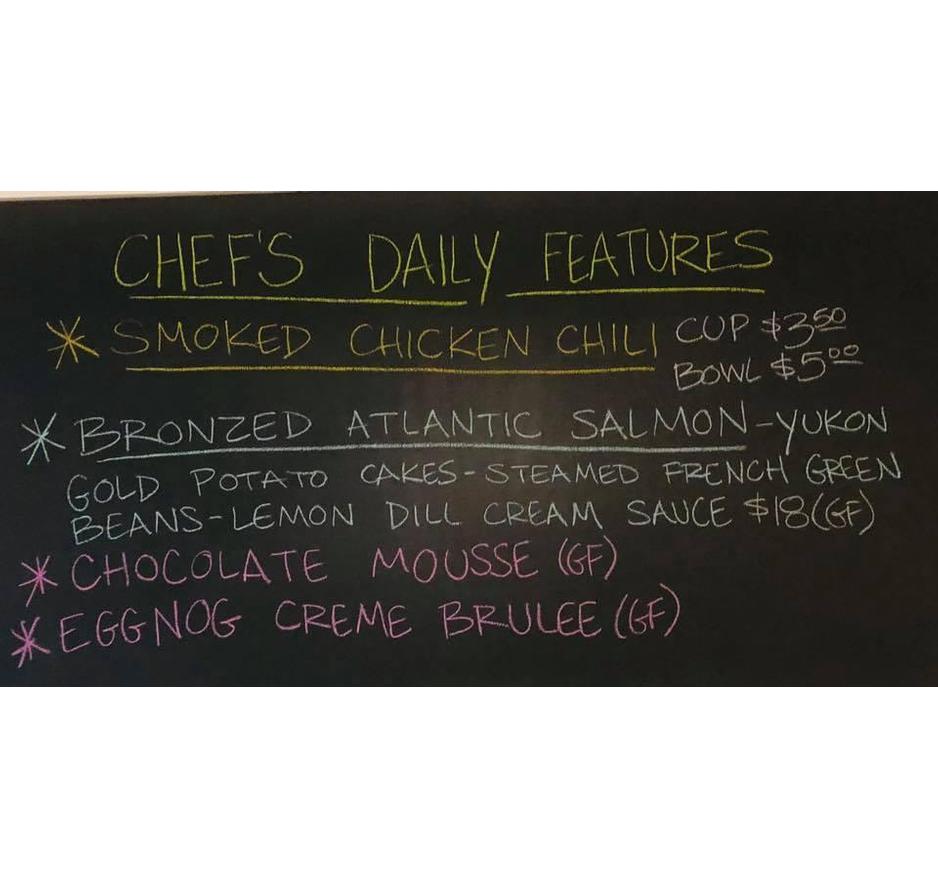 CHEF'S DAILY FEATURES
* SMOKED CHICKEN CHILI CUP $3.50
BOWL $5.00
* BRONZED ATLANTIC SALMON-YUKON
GOLD POTATO CAKES-STEAMED FRENCH GREEN
BEANS-LEMON DILL CREAM SAUCE $18(GF)
* CHOCOLATE MOUSSE (GF)
* EGGNOG CREME BRULEE (GF)